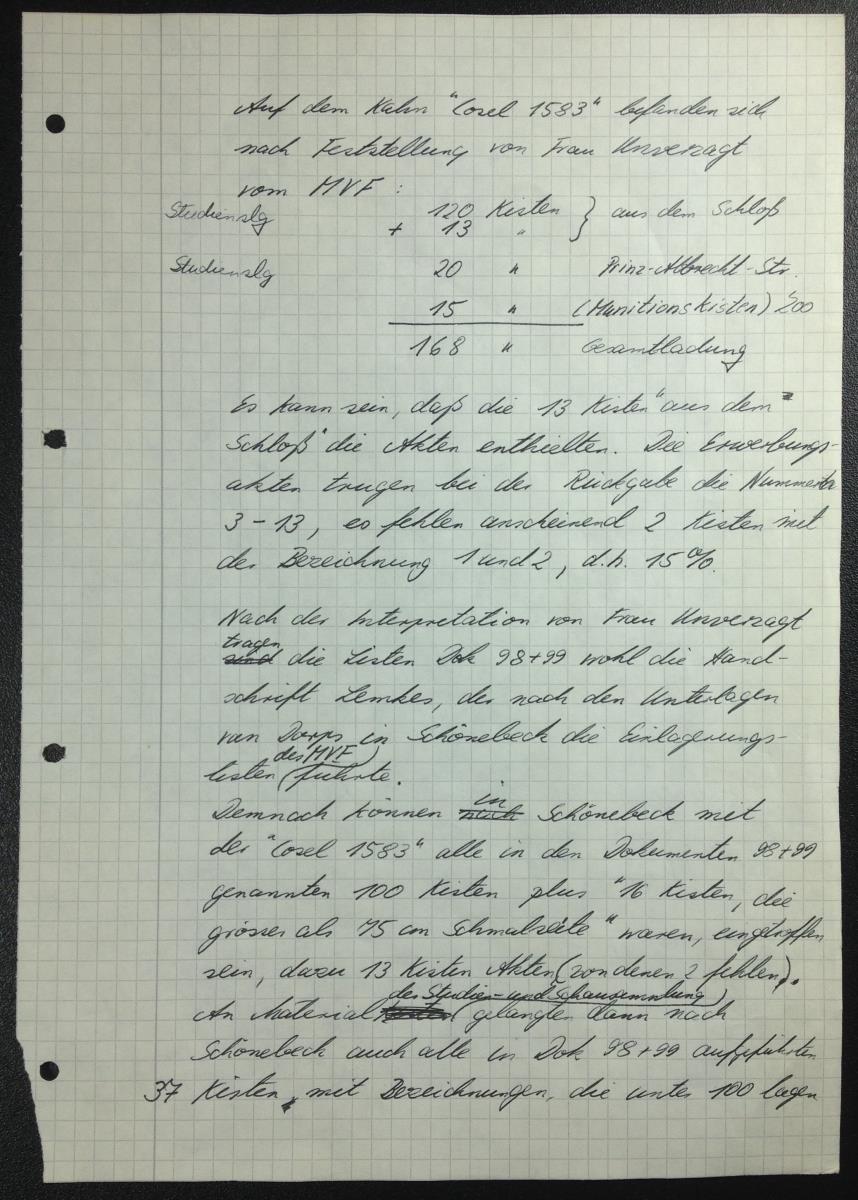 Auf dem Kahn "Cosel 1583" befanden sich
nach Feststellung von Frau Unverzagt
vom MVF :
Studienslg 120 Kisten } aus dem Schloß
+ 13 "
Studienslg 20 " Prinz-Albrecht-Str.
15 " (Munitionskisten)
168 " Gesamtladung
Es kann sein, daß die 13 Kisten "aus dem
Schloß" die Akten enthielten. Die Erwerbungs-
akten trugen bei der Rückgabe die Nummern
3 - 13, es fehlen anscheinend 2 Kisten mit
der Bezeichnung 1 und 2, d.h. 15%.
Nach der Interpretation von Frau Unverzagt
tragen
sind die Listen Dok 98+99 wohl die Hand-
schrift Lemkes, der nach den Unterlagen
van Dorps in Schönebeck die Einlagerungs-
des MVF)
listen (führte.
in
Demnach können nach Schönebeck mit
der "Cosel 1583" alle in den Dokumenten 98+99
genannten 100 Kisten plus "16 Kisten, die
grösser als 75 cm Schmalseite" waren, eingetroffen
sein, dazu 13 Kisten Akten (von denen 2 fehlen).
der Studien- und Schausammlung)
An Material ( gelangten dann nach
Schönebeck auch alle in Dok 98+99 aufgeführten
37 Kisten, mit Bezeichnungen, die unter 100 lagen